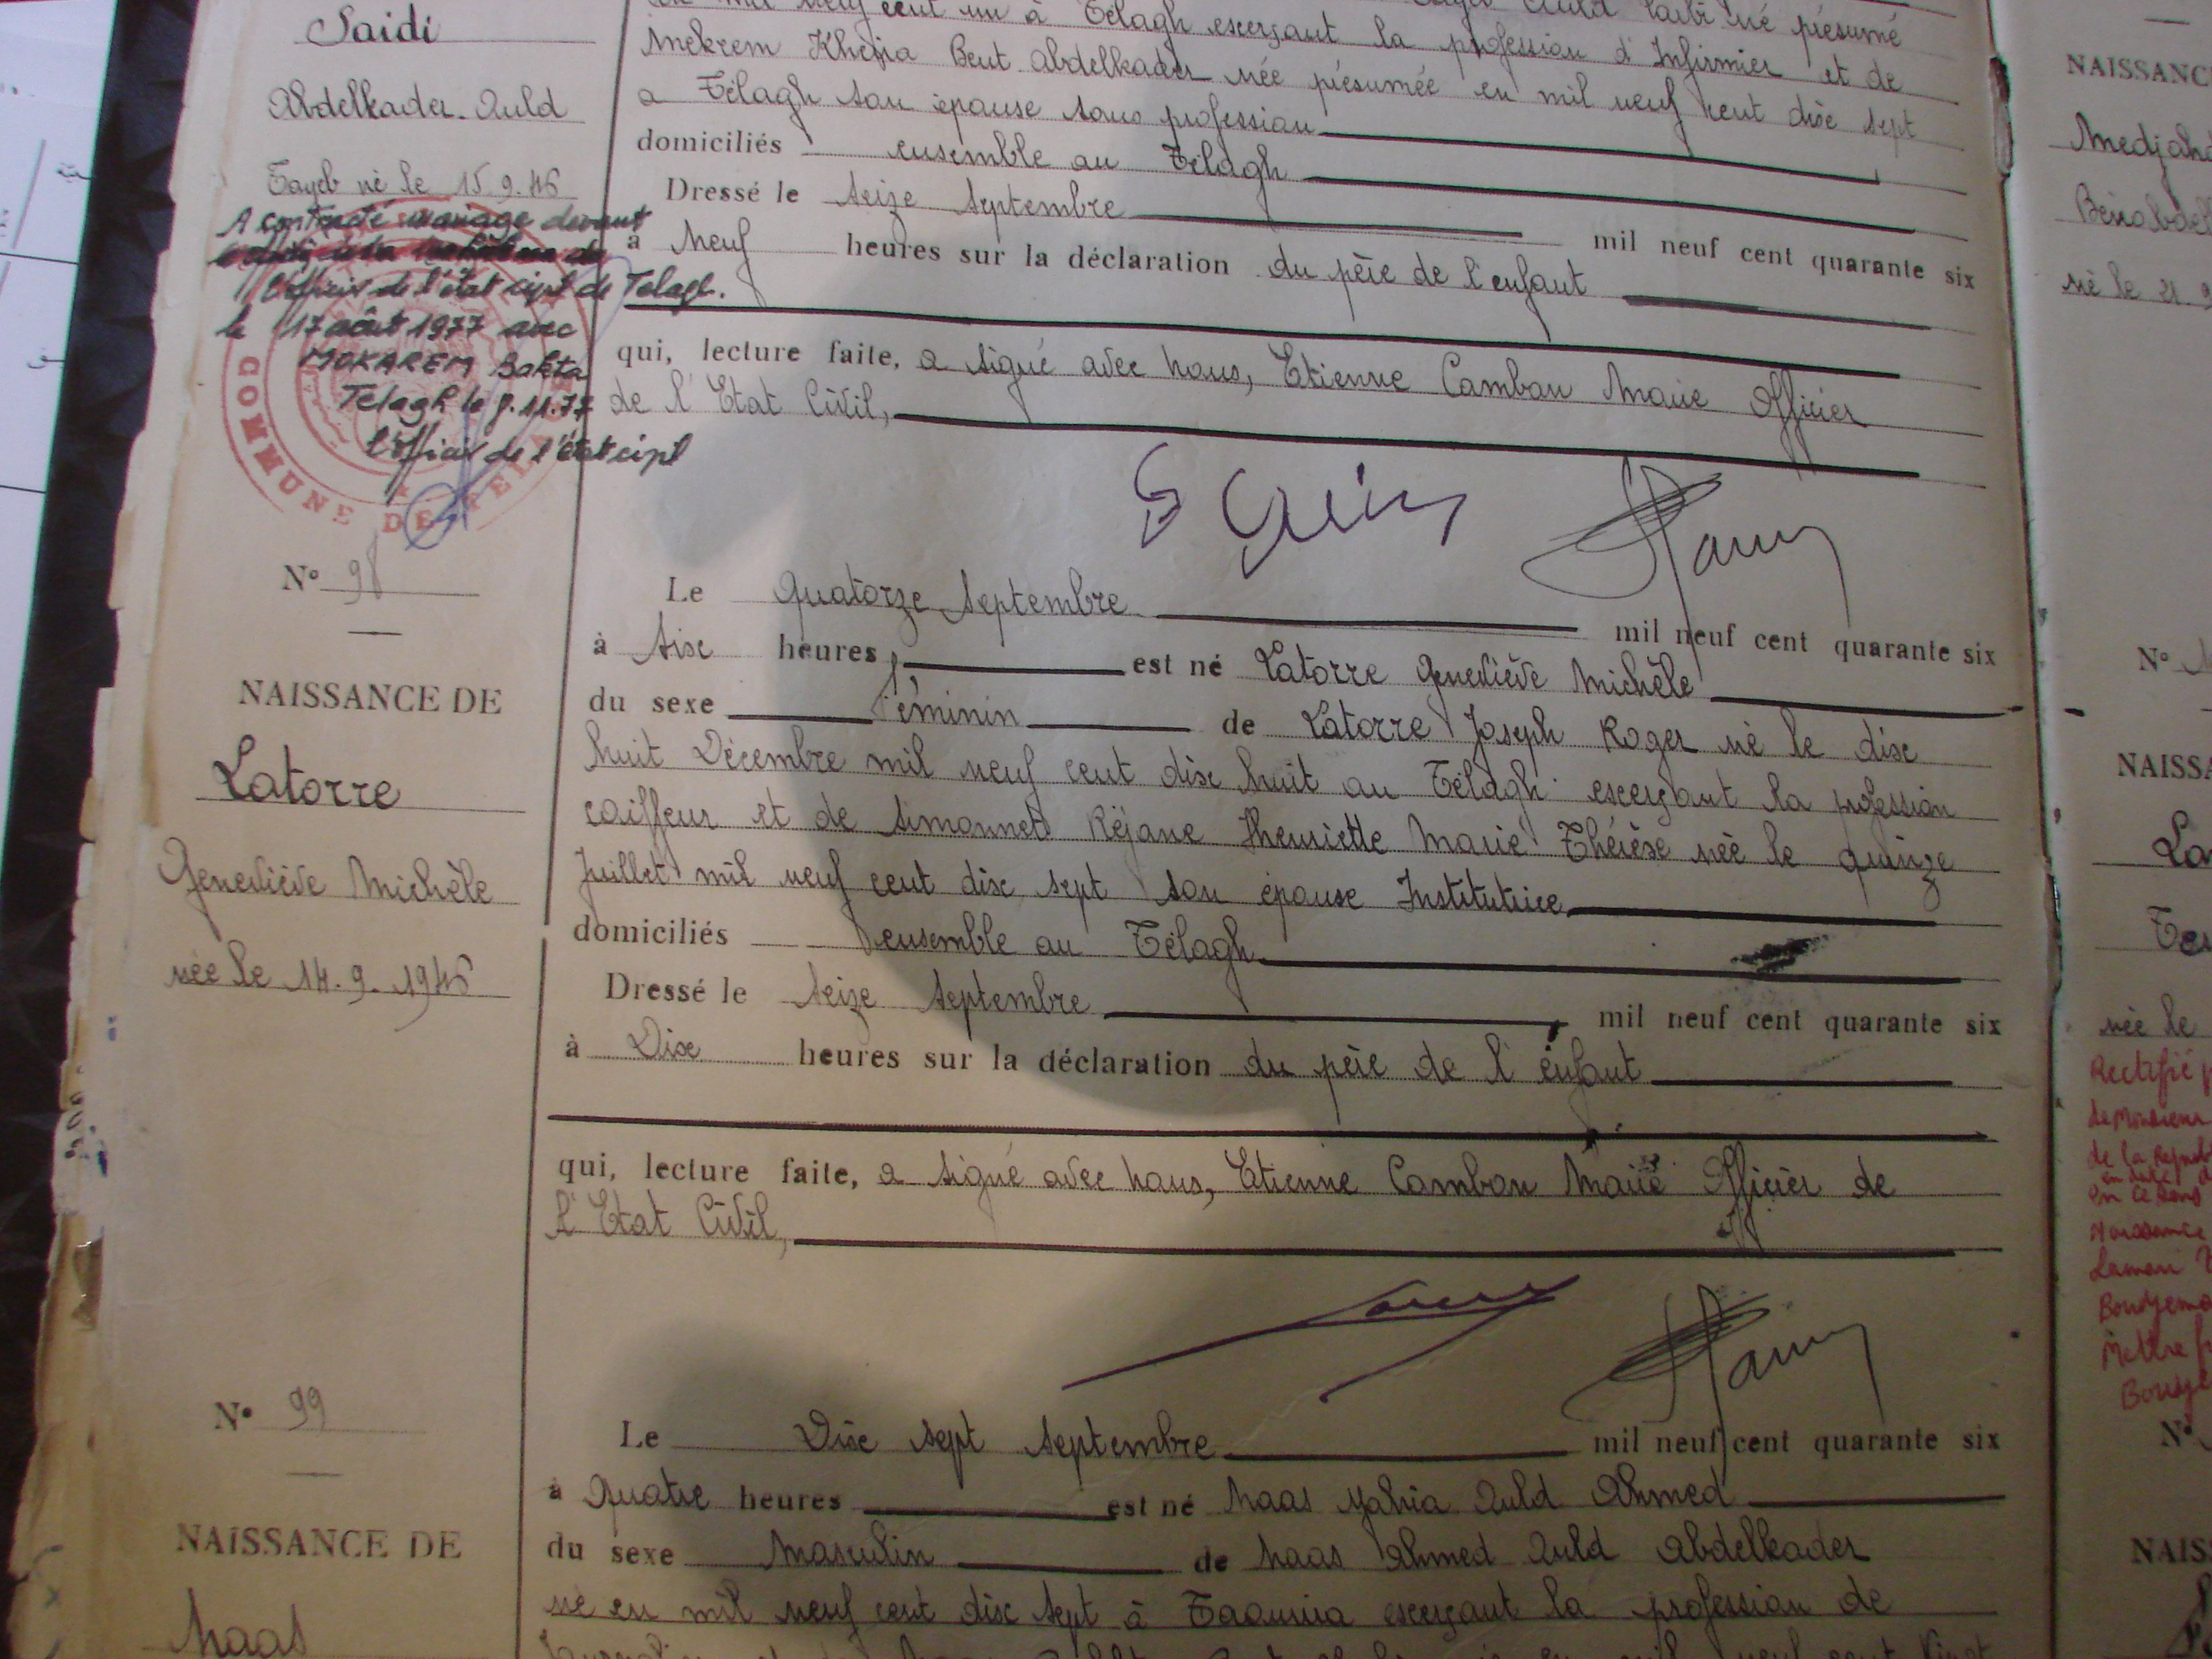 Saidi
Abdelkader Ould
Tayeb né le 15.9.46
A contracté mariage devant
l'officier de l'état civil de Telagh.
le 17 août 1977 avec
MOKAREM Bakta
Telagh le 9.11.77
l'officier de l'état civil
COMMUNE DE TELAGH
mil neuf cent un à Télagh exerçant la profession d'Infirmier et de
Mekrem Kheira Bent Abdelkader née présumée en mil neuf cent dix sept
a Télagh son épouse sans profession
domiciliés ensemble au Télagh
Dressé le seize septembre mil neuf cent quarante six
à Neuf heures sur la déclaration du père de l'enfant
qui, lecture faite, a signé avec nous, Etienne Cambon Maire Officier
de l'Etat Civil,
N° 98
NAISSANCE DE
Latorre
Geneviève Michèle
née le 14.9.1946
Le Quatorze Septembre mil neuf cent quarante six
à six heures, est né Latorre Geneviève Michèle
du sexe féminin de Latorre Joseph Roger né le dix
huit Décembre mil neuf cent dix huit au Télagh exerçant la profession
coiffeur et de Simonnet Réjane Henriette Marie Thérèse née le quinze
Juillet mil neuf cent dix sept son épouse Institutrice
domiciliés ensemble au Télagh
Dressé le seize septembre, mil neuf cent quarante six
à Dix heures sur la déclaration du père de l'enfant
qui, lecture faite, a signé avec nous, Etienne Cambon Maire Officier de
l'Etat Civil,
N° 99
NAISSANCE DE
Naas
Le Dix sept septembre mil neuf cent quarante six
à Quatre heures est né Naas Yahia Ould Ahmed
du sexe Masculin de Naas Ahmed Ould Abdelkader
né en mil neuf cent dix sept à Taoumia exerçant la profession de
NAISSANC
Medjah
Benabdel
né le 21.9
N°
NAISSA
La
née le
Rectifié
de Monsieur
de la
en ce sens
Naissance
Boudjema
Mettre
N°
NAIS